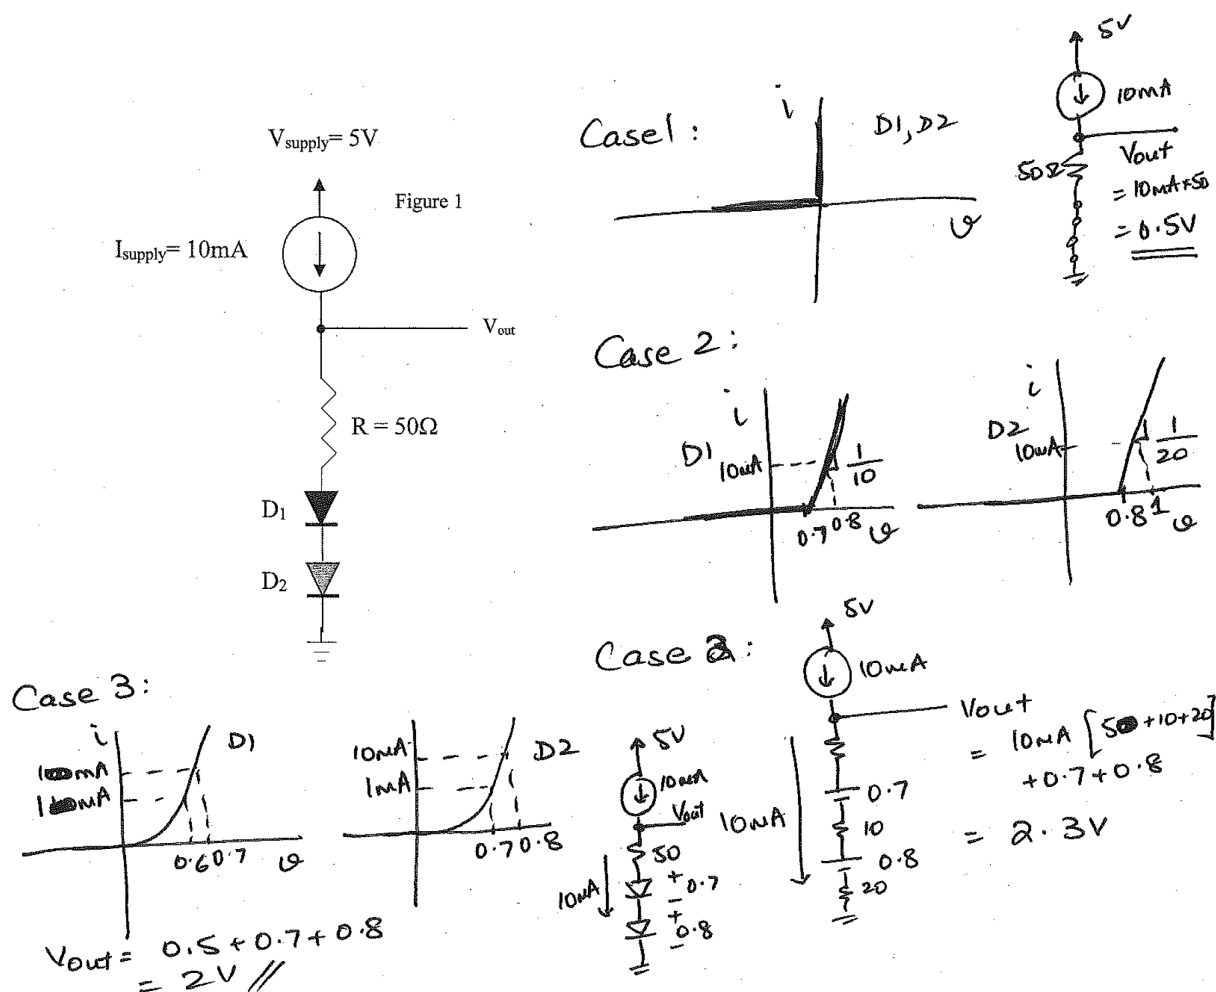 V_supply= 5V
Figure 1
I_supply= 10mA
V_out
R = 50Ω
D_1
D_2
Case 1 :
i
D1, D2
v
5V
10mA
50Ω
Vout
= 10mA*50
= 0.5V
Case 2 :
i
D1
10mA
1/10
0.7 0.8 v
i
D2
10mA
1/20
0.8 1 v
Case 2 :
5V
10mA
Vout
= 10mA [50+10+20]
+0.7+0.8
= 2.3V
10mA
0.7
10
0.8
20
Case 3 :
i
D1
10mA
1mA
0.6 0.7 v
10mA
D2
1mA
0.7 0.8
5V
10mA
Vout
50
10mA
+
0.7
-
+
0.8
-
Vout = 0.5+0.7+0.8
= 2V //